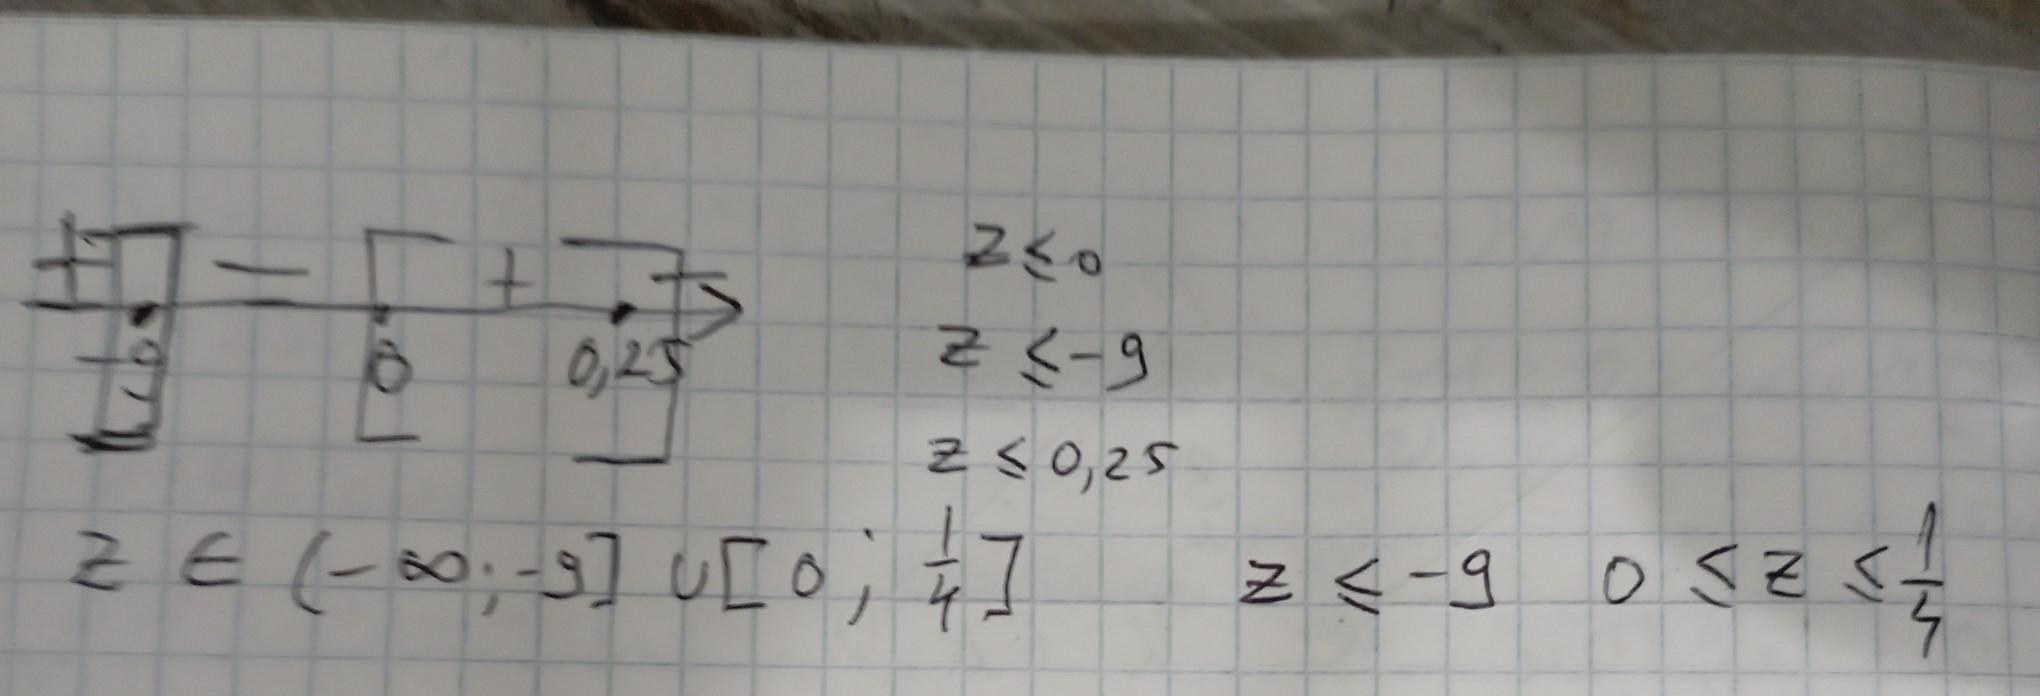 + − + +
-9 0 0,25
z ≤ 0
z ≤ -9
z ≤ 0,25
z ∈ (-∞; -9] ∪ [0; 1/4] z ≤ -9 0 ≤ z ≤ 1/4